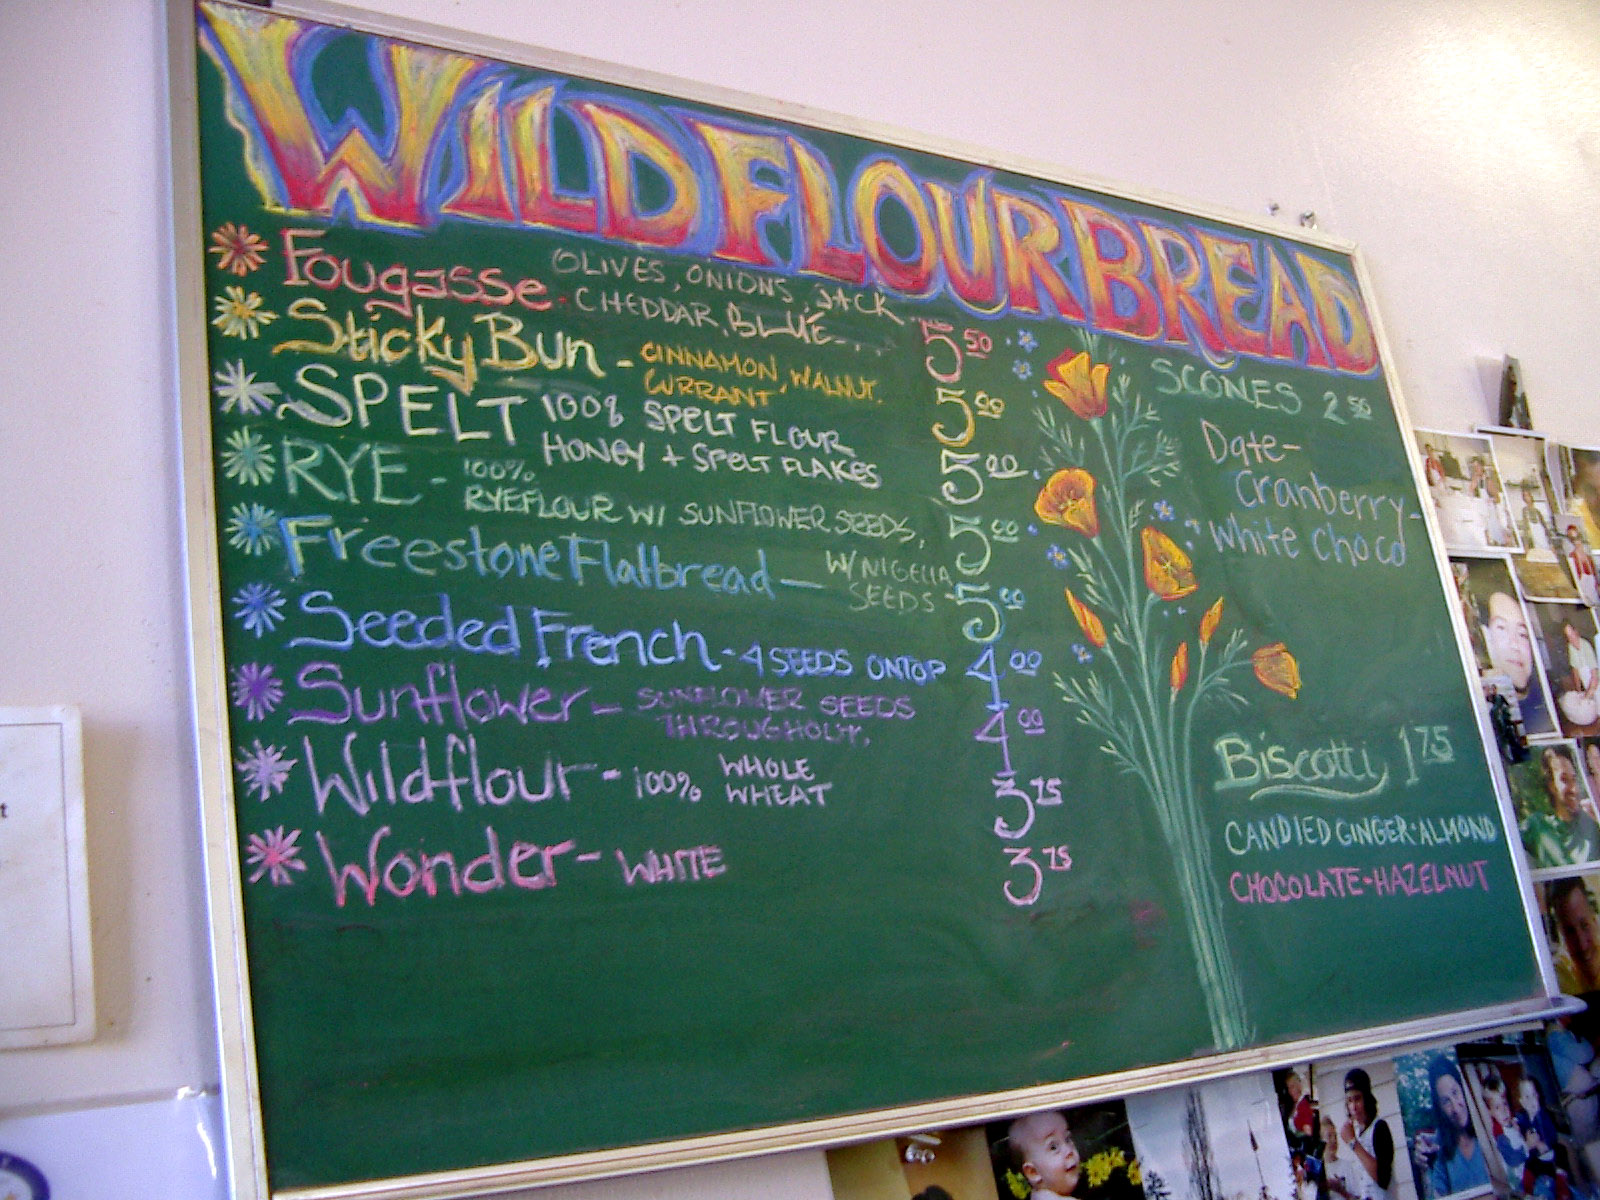 WILDFLOUR BREAD
Fougasse - OLIVES, ONIONS, JACK 5.50
CHEDDAR, BLUE...
Sticky Bun - CINNAMON, WALNUT, 5.00
CURRANT
SPELT 100% SPELT FLOUR 5.00
HONEY + SPELT FLAKES
RYE - 100% 5.00
RYEFLOUR W/ SUNFLOWER SEEDS,
Freestone Flatbread - W/ NIGELLA 5.00
SEEDS -
Seeded French - 4 SEEDS ON TOP 4.00
Sunflower - SUNFLOWER SEEDS 4.00
THROUGHOUT.
Wildflour - 100% WHOLE 3.75
WHEAT
Wonder - WHITE 3.75
SCONES 2.50
Date-
Cranberry-
White choco
Biscotti 1.75
CANDIED GINGER·ALMOND
CHOCOLATE-HAZELNUT
t